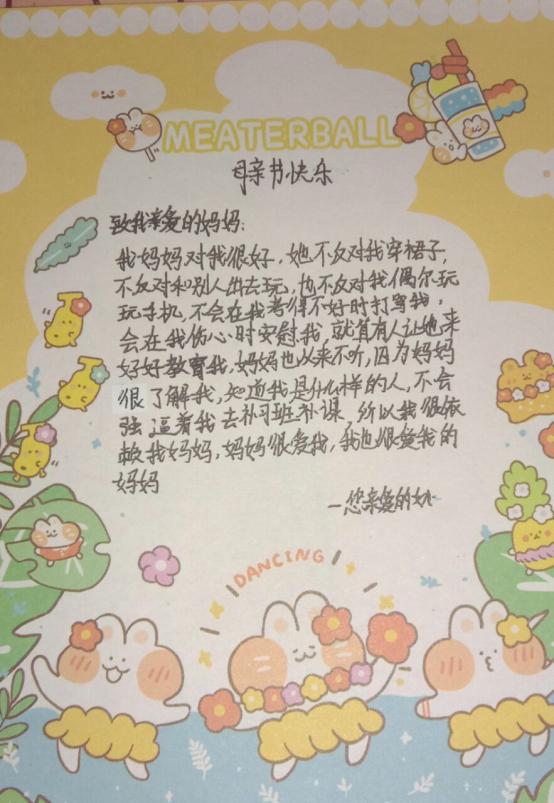 MEATERBALL
母亲节快乐
致我亲爱的妈妈：
我妈妈对我很好，她不反对我穿裙子，
不反对和别人出去玩，也不反对我偶尔玩
玩手机，不会在我考得不好时打骂我，
会在我伤心时安慰我，就算有人让她来
好好教育我，妈妈也从来不听，因为妈妈
很了解我，知道我是什么样的人，不会
强逼着我去补习班补课，所以我很依
赖我妈妈，妈妈很爱我，我也很爱我的
妈妈
—您亲爱的
DANCING